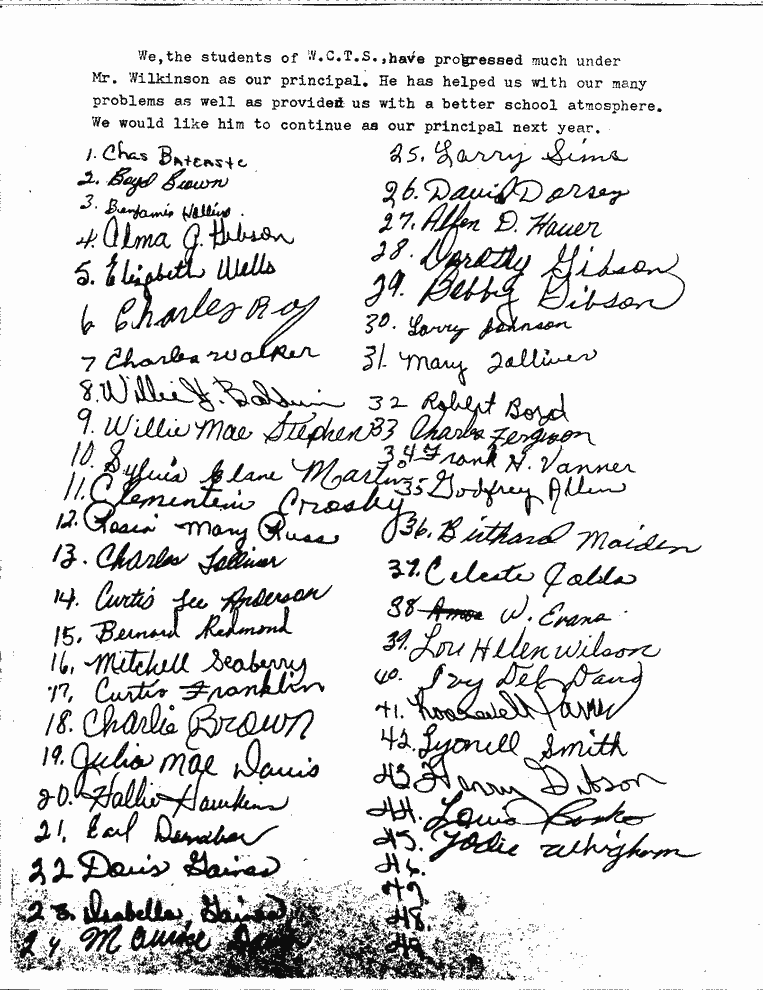 We, the students of W.C.T.S., have progressed much under
Mr. Wilkinson as our principal. He has helped us with our many
problems as well as provided us with a better school atmosphere.
We would like him to continue as our principal next year.
1. Chas Bateaste
2. Boyd Brown
3. Benjamin
4. Alma J. Gibson
5. Elizabeth Wells
6 Charles Roy
7 Charles Walker
8. Willie J. Baldwin
9. Willie Mae Stephen
10. Sylvia Elane Martin
11. Clementein Crosby
12. Rosia Mary Russ
13. Charles Talliver
14. Curtis Lee Anderson
15. Bernard Redmond
16. Mitchell Seaberry
17. Curtis Franklin
18. Charlie Brown
19. Julia Mae Davis
20. Hallie Hawkins
21. Earl
22 Doris Gaines
23. Isabella Gaines
24 Maurice
25. Larry Sims
26. David Dorsey
27. Allen D. Hauer
28. Dorothy Gibson
29. Bobby Gibson
30. Larry Johnson
31. Mary Talliver
32 Robert Boyd
33 Charles Ferguson
34 Frank H. Vanner
35 Godfrey Allen
36. Burthard Maiden
37. Celeste
38 Amos W. Evans
39. Lou Helen Wilson
40. Ivy Dell Davis
41. Roosevelt
42. Lyonell Smith
43 Henry Dibson
44. Louis
45. Jodie Whigham
46.
47.
48.
49.